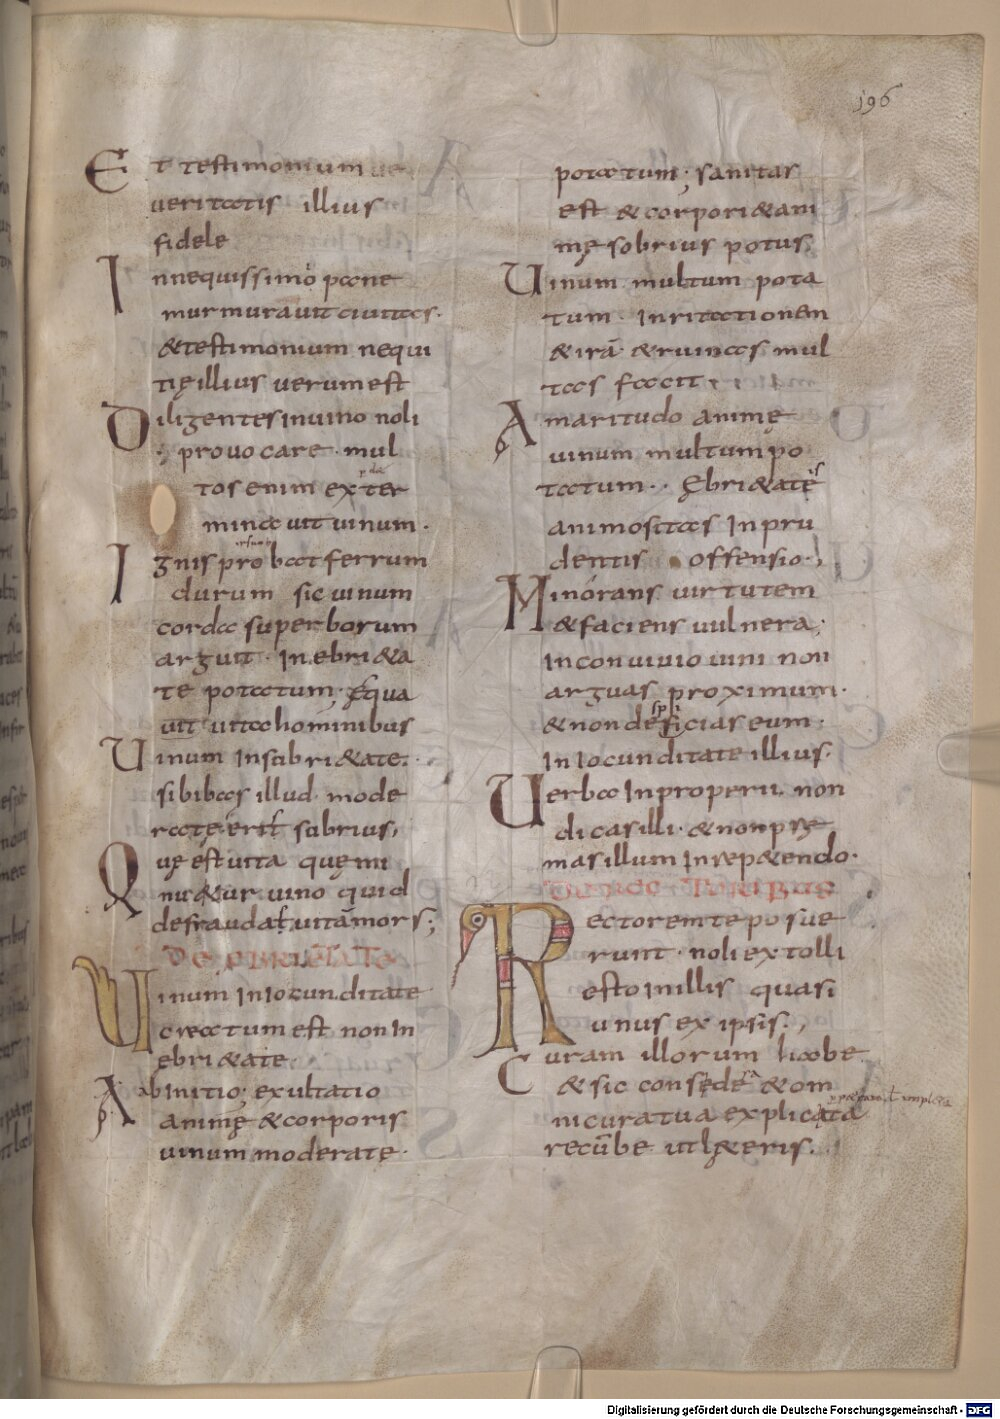 196
Et testimonium ve
veritatis illius
fidele
Innequissimo pane
murmuravit civitas.
&testimonium nequi
tię illius verum est
Diligentes in vino noli
provocare. mul
tos enim exter
minavit vinum.
Ignis probat ferrum
durum sic vinum
corda superborum
arguit. In ebri&a
te potatum. Ęqua
vit vita hominibus
Vinum In sobri&ate.
si bibas illud. mode
rate. erit sobrius,
Quę est vita quę mi
nu&ur vino quid
defraudat vitā mors;
DE EBRIETATE
Vinum In Iocunditate
creatum est non In
ebri&ate.
Ab Initio; exultatio
animę & corporis
vinum moderate.
potatum; sanitas
est & corpori & ani
mę sobrius potus.
Vinum multum pota
tum. Inritationem
& irā & ruinas mul
tas facit.
Amaritudo animę
vinum multum po
tatum. Ębri&atęs
animositas Inpru
dentis offensio.
Minorans virtutem
& faciens vulnera;
In convivio vini non
arguas proximum.
& non despicias eum.
In Iocunditate illius.
Verba Inproperii. non
dicas illi. & non prę
mas illum In rep&endo.
DE RECTORIBUS
Rectorem te posue
runt. noli extolli
esto In illis quasi
unus ex ipsis.,
Curam illorum habe
& sic consędę & om
ni cura tua explicata
recūbe ut lę&eris.
Digitalisierung gefördert durch die Deutsche Forschungsgemeinschaft - DFG